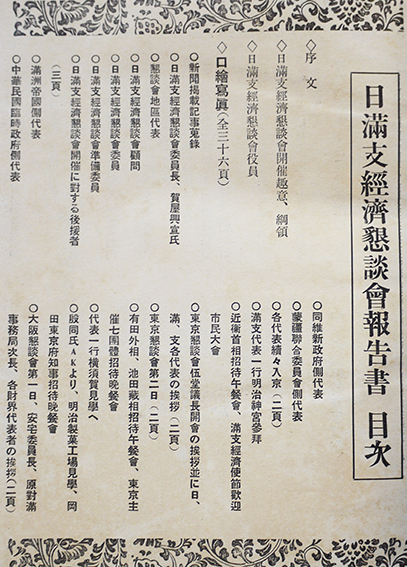 日滿支經濟懇談會報告書 目次
◇序文
◇日滿支經濟懇談會開催趣意、綱領
◇日滿支經濟懇談會役員
◇口繪寫眞(全三十六頁)
○新聞揭載記事蒐錄
○日滿支經濟懇談會委員長、賀屋興宣氏
○懇談會地區代表
○日滿支經濟懇談會顧問
○日滿支經濟懇談會委員
○日滿支經濟懇談會準備委員
○日滿支經濟懇談會開催に對する後援者
(三頁)
○滿洲帝國側代表
○中華民國臨時政府側代表
○同維新政府側代表
○蒙疆聯合委員會側代表
○各代表續々入京(二頁)
○滿支代表一行明治神宮參拜
○近衞首相招待午餐會、滿支經濟使節歡迎
市民大會
○東京懇談會伍堂議長開會の挨拶並に日、
滿、支各代表の挨拶(二頁)
○東京懇談會第二日(二頁)
○有田外相、池田藏相招待午餐會、東京主
催七團體招待晚餐會
○代表一行橫須賀見學へ
○殷同氏AKより、明治製菓工場見學、岡
田東京府知事招待晚餐會
○大阪懇談會第一日、安宅委員長、原對滿
事務局次長、各財界代表者の挨拶(二頁)